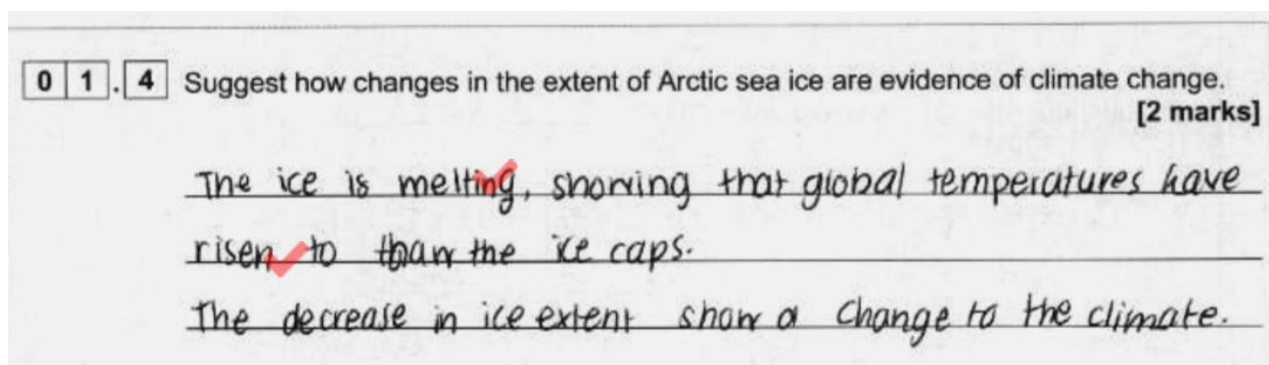 01.4 Suggest how changes in the extent of Arctic sea ice are evidence of climate change.
[2 marks]
The ice is melting, showing that global temperatures have
risen to thaw the ice caps.
The decrease in ice extent show a change to the climate.